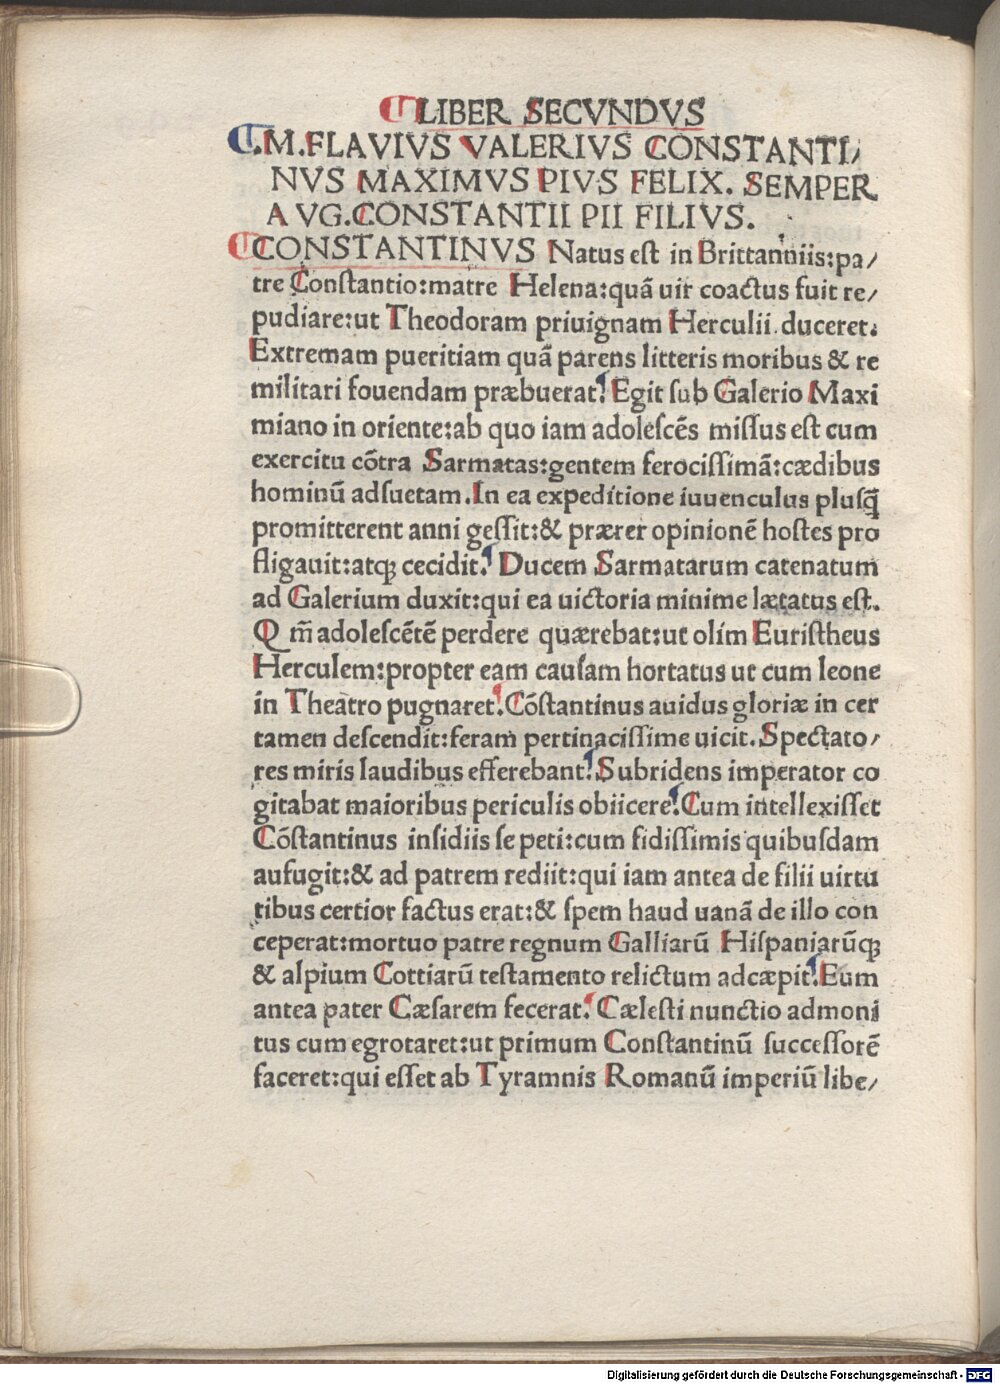 LIBER SECVNDVS
.M.FLAVIVS VALERIVS CONSTANTI/
NVS MAXIMVS PIVS FELIX. SEMPER
AVG.CONSTANTII PII FILIVS.
CONSTANTINVS Natus eſt in Brittanniis:pa/
tre Conſtantio:matre Helena:quā uir coactus fuit re/
pudiare:ut Theodoram priuignam Herculii duceret.
Extremam pueritiam quā parens litteris moribus & re
militari fouendam præbuerat. Egit ſub Galerio Maxi
miano in oriente:ab quo iam adoleſcēs miſſus eſt cum
exercitu cōtra Sarmatas:gentem ferociſſimā:cædibus
hominū adſuetam.In ea expeditione iuuenculus pluſq̄
promitterent anni geſſit:& prærer opinionē hoſtes pro
fligauit:atqꝫ cecidit. Ducem Sarmatarum catenatum
ad Galerium duxit:qui ea uictoria minime lætatus eſt.
Q m̄ adoleſcētē perdere quærebat:ut olim Euriſtheus
Herculem:propter eam cauſam hortatus ut cum leone
in Theatro pugnaret.Cōſtantinus auidus gloriæ in cer
tamen deſcendit:feram pertinaciſſime uicit.Spectato/
res miris laudibus efferebant.Subridens imperator co
gitabat maioribus periculis obiicere.Cum intellexiſſet
Cōſtantinus inſidiis ſe peti:cum fidiſſimis quibuſdam
aufugit:& ad patrem rediit:qui iam antea de filii uirtu
tibus certior factus erat:& ſpem haud uanā de illo con
ceperat:mortuo patre regnum Galliarū Hiſpaniarūqꝫ
& alpium Cottiarū teſtamento relictum adcæpit.Eum
antea pater Cæſarem fecerat. Cæleſti nunctio admoni
tus cum egrotaret:ut primum Conſtantinū ſucceſſorē
faceret:qui eſſet ab Tyramnis Romanū imperiū libe/
Digitalisierung gefördert durch die Deutsche Forschungsgemeinschaft - DFG